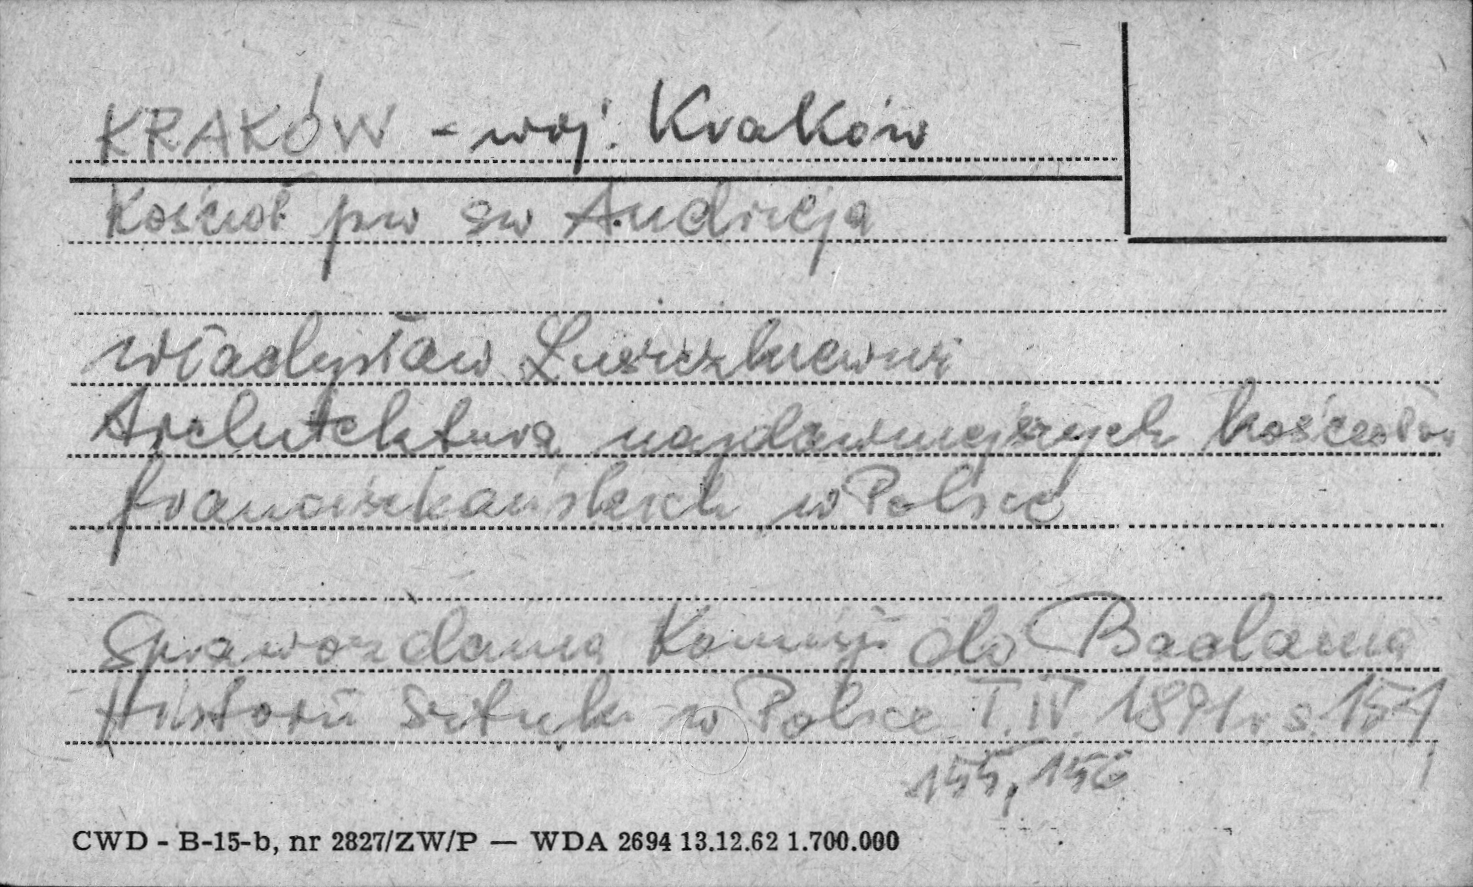 KRAKÓW - woj. Kraków
Kościół pw św Andrzeja
Władysław Łuszczkiewicz
Architektura najdawniejszych kościołów
franciszkańskich w Polsce
Sprawozdania Komisji do Badania
Historii Sztuki w Polsce T. IV. 1891 r s. 154,
155, 156
CWD - B-15-b, nr 2827/ZW/P — WDA 2694 13.12.62 1.700.000